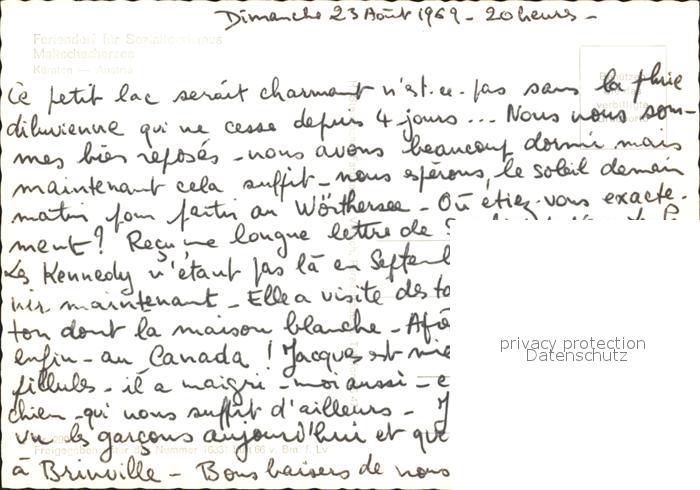 Dimanche 23 Août 1969 - 20 heures -
Feriendorf für Sozialtourismus
Maltschachersee
Kärnten — Austria
Ce petit lac serait charmant n'est-ce-pas sans la pluie
diluvienne qui ne cesse depuis 4 jours ... Nous nous som-
mes bien reposés - nous avons beaucoup dormi mais
maintenant cela suffit - nous espérons le soleil demain
matin pour partir au Wörthersee - Où étiez-vous exacte-
ment? Reçu une longue lettre de
Les Kennedy n'étant pas là en Septem
nir maintenant - Elle a visité des
ton dont la maison blanche -
enfin - au Canada ! Jacques est
fillules - il a maigri - moi aussi - e
chien - qui nous suffit d'ailleurs - J
vu les garçons aujourd'hui et que
à Brinville - Bons baisers de nous
privacy protection
Datenschutz